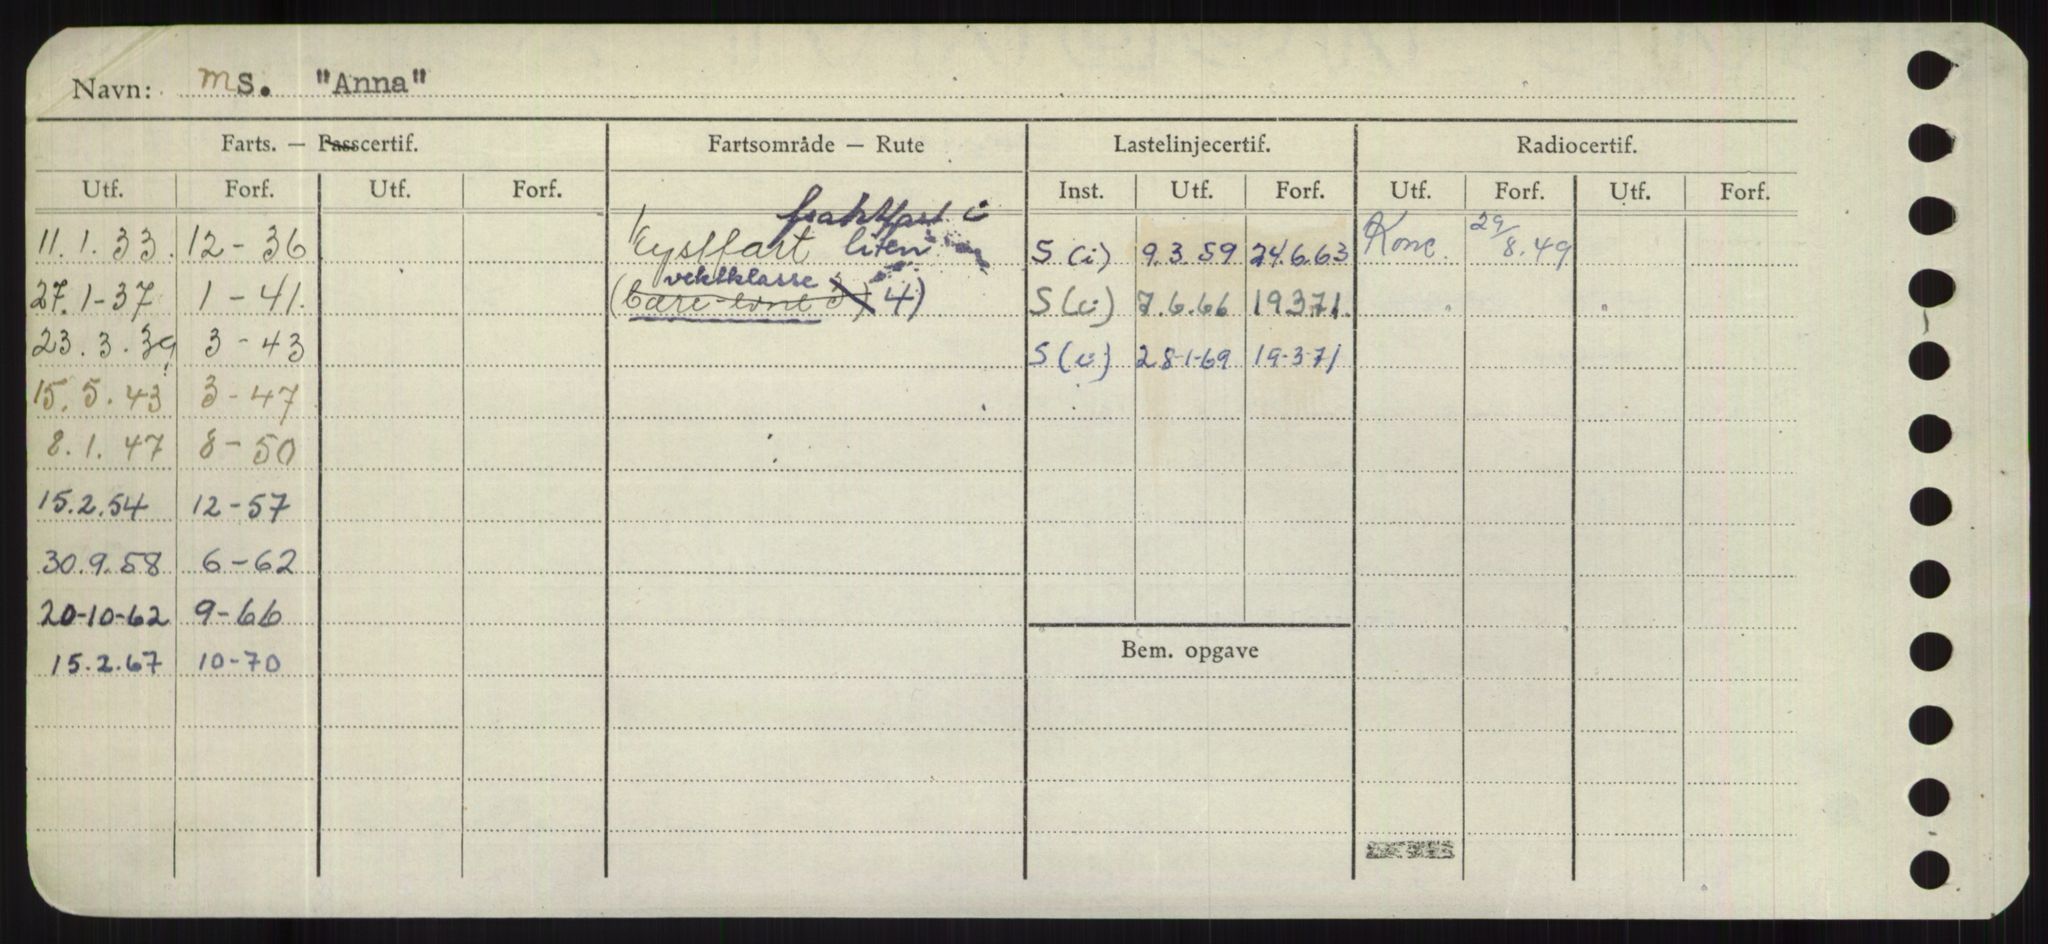 Navn: MS. "Anna"
Farts. — Passcertif. Fartsområde — Rute Lastelinjecertif. Radiocertif.
Utf. Forf. Utf. Forf. Inst. Utf. Forf. Utf. Forf. Utf. Forf.
fraktfart i
11.1.33. 12-36 Kystfart liten S (i) 9.3.59 24.6.63 Konc. 29/8.49
vektklasse
27.1-37 1-41. (bære-evne 3) 4) S (i) 7.6.66 19371.
23.3.39 3-43 S (i) 28-1-69 19-3-71
15.5.43 3-47
8.1.47 8-50
15.2.54 12-57
30.9.58 6-62
20-10-62 9-66
Bem. opgave
15.2.67 10-70